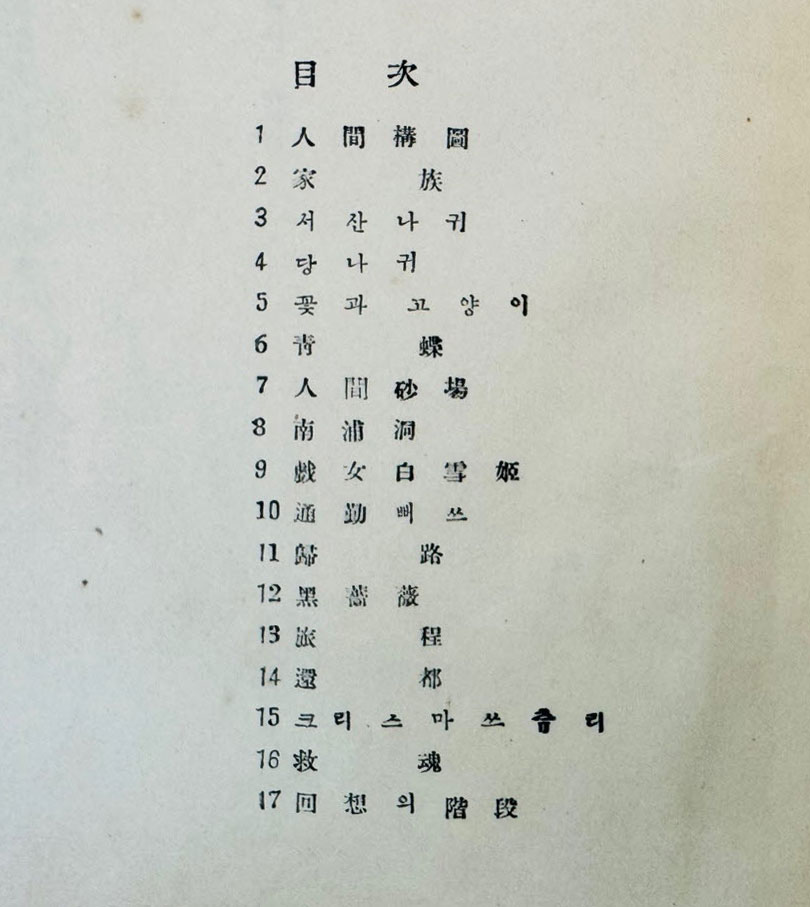 目次
1 人間構圖
2 家族
3 서산나귀
4 당나귀
5 꽃과 고양이
6 靑蝶
7 人間砂場
8 南浦洞
9 戱女白雪姬
10 通勤뻐쓰
11 歸路
12 黑薔薇
13 旅程
14 還都
15 크리스마쓰츔리
16 救魂
17 回想의階段